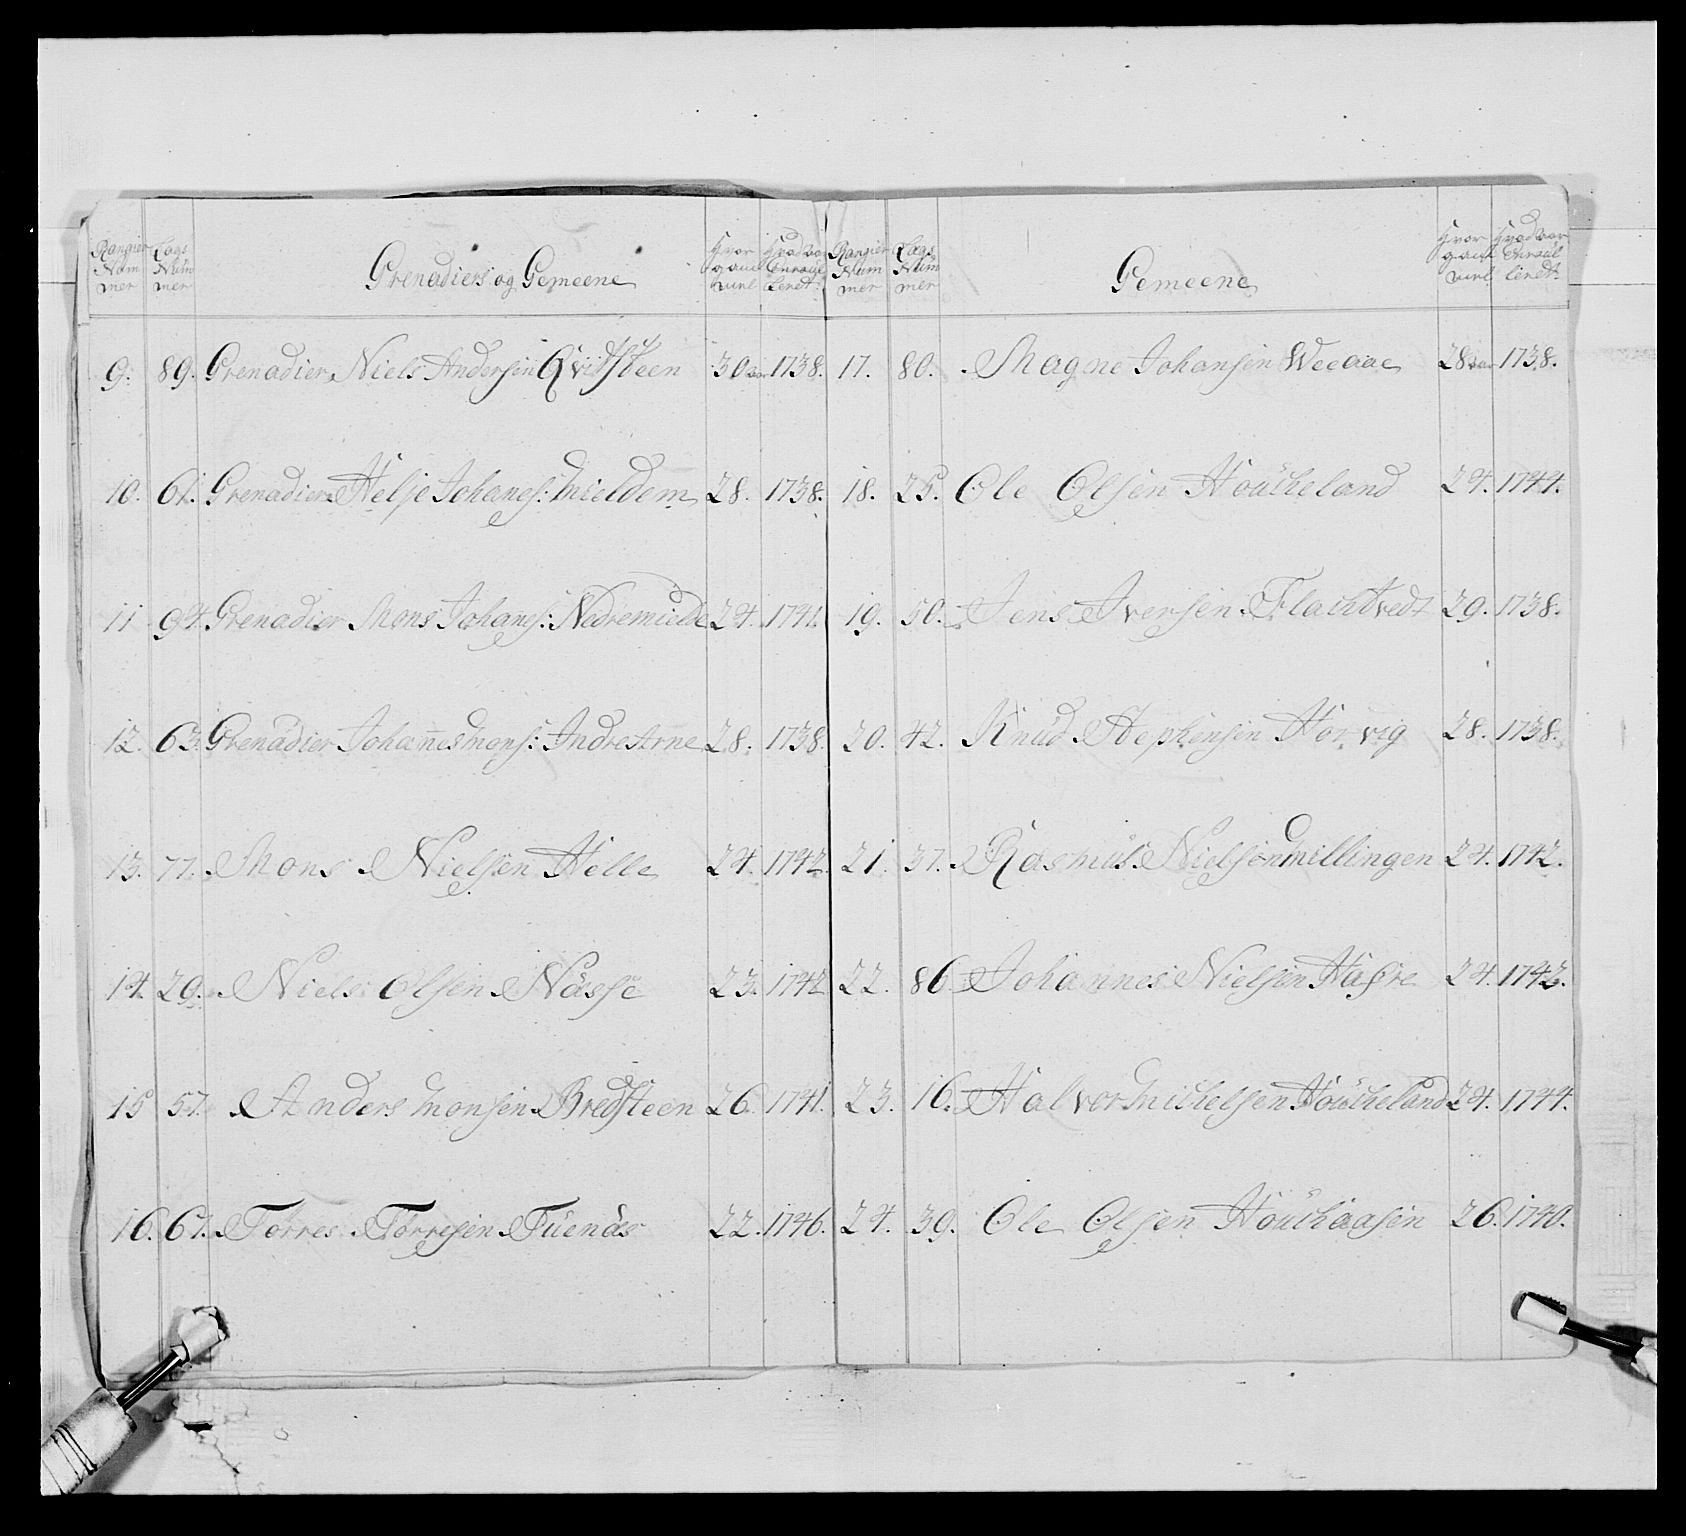 Rangier Num mer
Lags Num mer
Grenadiers og Gemeene
Hvor gam mel
Hvad aar Enroul leredt
9. 89. Grenadier Niels Andersen Qvitsteen 30 aar 1738.
10. 61. Grenadier Helje Johanes: Mieldem 28. 1738.
11 94. Grenadier Mons Johanes: Nedremielde 24. 1741.
12. 63. Grenadier Johannes Mons: Indre Arne 28. 1738.
13. 77. Mons Nielsen Helle 24. 1742.
14. 29. Niels Olsen Nässe 23. 1742
15 57. Anders Monsen Bredsteen 26. 1741.
16. 67. Torres Torresen Fuenäs 22. 1746.
Rangier Num mer
Lags Num mer
Gemeene
Hvor gam mel
Hvad aar Enroul leredt
17. 80. Magne Johansen Weeaae 28 aar 1738.
18. 25. Ole Olsen Houcheland 24. 1744.
19. 50. Jens Iversen Flachtvedt 29. 1738.
20. 42. Knud Stephensen Horvig 28. 1738.
21. 37. Rasmus Nielsen Millingen 24. 1742.
22. 86 Johannes Nielsen Hafre 24. 1742.
23. 16. Halvor Michelsen Houcheland 24. 1744.
24. 39. Ole Olsen Houchaasen 26. 1740.